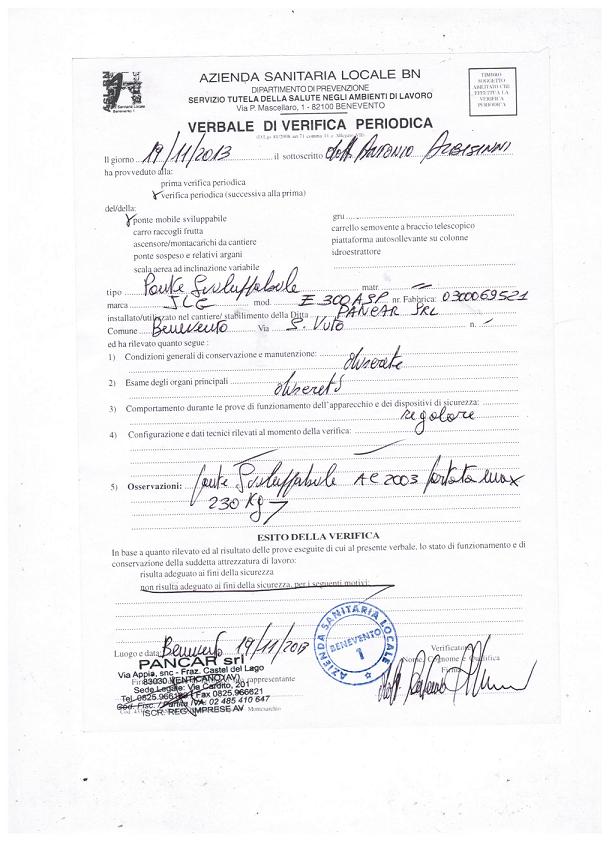 AZIENDA SANITARIA LOCALE BN
DIPARTIMENTO DI PREVENZIONE
SERVIZIO TUTELA DELLA SALUTE NEGLI AMBIENTI DI LAVORO
Via P. Mascellaro, 1 - 82100 BENEVENTO
TIMBRO
SOGGETTO
ABILITATO CHE
EFFETTUA LA
VERIFICA
PERIODICA
VERBALE DI VERIFICA PERIODICA
Il giorno 19/11/2013 il sottoscritto dott. Antonio Albisinni
ha provveduto alla:
prima verifica periodica
verifica periodica (successiva alla prima)
del/della:
ponte mobile sviluppabile
carro raccogli frutta
ascensore/montacarichi da cantiere
ponte sospeso e relativi argani
scala aerea ad inclinazione variabile
gru
carrello semovente a braccio telescopico
piattaforma autosollevante su colonne
idroestrattore
tipo Ponte Sviluppabile matr. -
marca JLG mod. E 300 ASP nr. Fabbrica: 0300069521
installato/utilizzato nel cantiere/ stabilimento della Ditta PANCAR SRL
Comune Benevento Via S. Vito n. -
ed ha rilevato quanto segue :
1) Condizioni generali di conservazione e manutenzione: discrete
2) Esame degli organi principali discreti
3) Comportamento durante le prove di funzionamento dell'apparecchio e dei dispositivi di sicurezza:
regolare
4) Configurazione e dati tecnici rilevati al momento della verifica:
5) Osservazioni: Ponte Sviluppabile AC 2003 portata max
230 Kg
ESITO DELLA VERIFICA
In base a quanto rilevato ed al risultato delle prove eseguite di cui al presente verbale, lo stato di funzionamento e di
conservazione della suddetta attrezzatura di lavoro:
risulta adeguato ai fini della sicurezza
non risulta adeguato ai fini della sicurezza, per i seguenti motivi:
Luogo e data Benevento 19/11/2013
AZIENDA SANITARIA LOCALE
BENEVENTO
1
PANCAR srl
Via Appia, snc - Fraz. Castel del Lago
83030 VENTICANO (AV)
Sede Legale: Via Cardito, 201
Fax 0825.966621
Cod. Fisc. / Partita IVA: 02 485 410 647
ISCR. REG. IMPRESE AV
rappresentante
Verificatore
Nome, Cognome e Qualifica
Firma